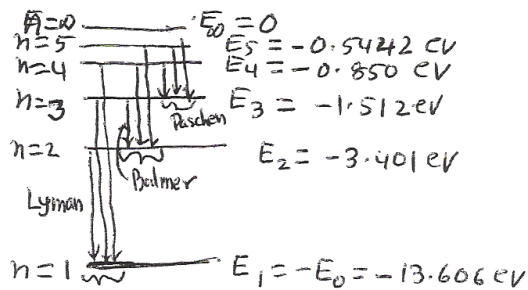 n=∞ E∞=0
n=5 E5=-0.5442 eV
n=4 E4=-0.850 eV
n=3 Paschen E3= -1.512 eV
n=2 E2= -3.401 eV
Balmer
Lyman
n=1 E1=-E0=-13.606 eV